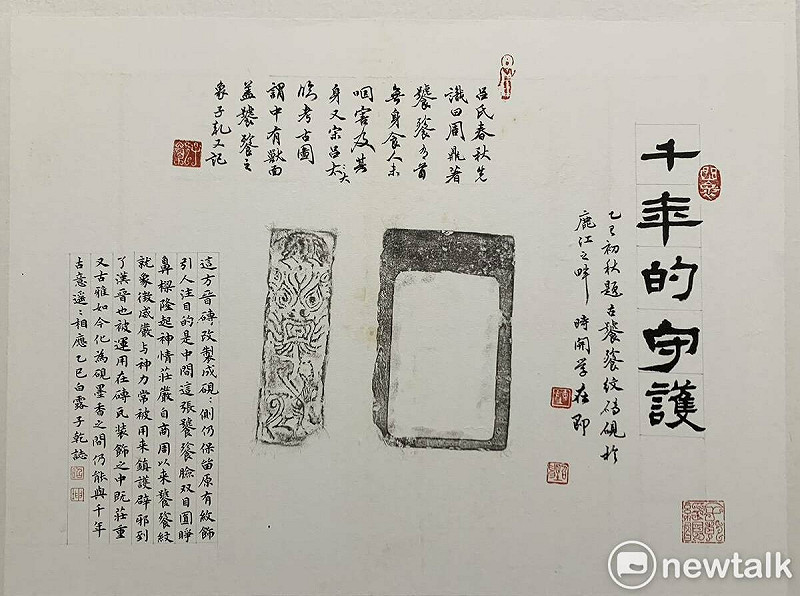 千年的守護
乙巳初秋題古饕餮紋磚硯於
鹿江之畔 時開學在即
呂氏春秋先
識曰周鼎著
饕餮有首
無身食人未
咽害及其
身又宋呂大
臨考古圖
謂中有獸面
蓋饕餮之
象子乾又記
這方晉磚改製成硯側仍保留原有紋飾
引人注目的是中間這張饕餮臉双目圓睜
鼻樑隆起神情莊嚴自商周以來饕餮紋
就象徵威嚴与神力常被用來鎮護辟邪到
了漢晉也被運用在磚瓦装飾之中既莊重
又古雅如今化為硯墨香之間仍能與千年
古意遥〻相應乙巳白露子乾誌
newtalk